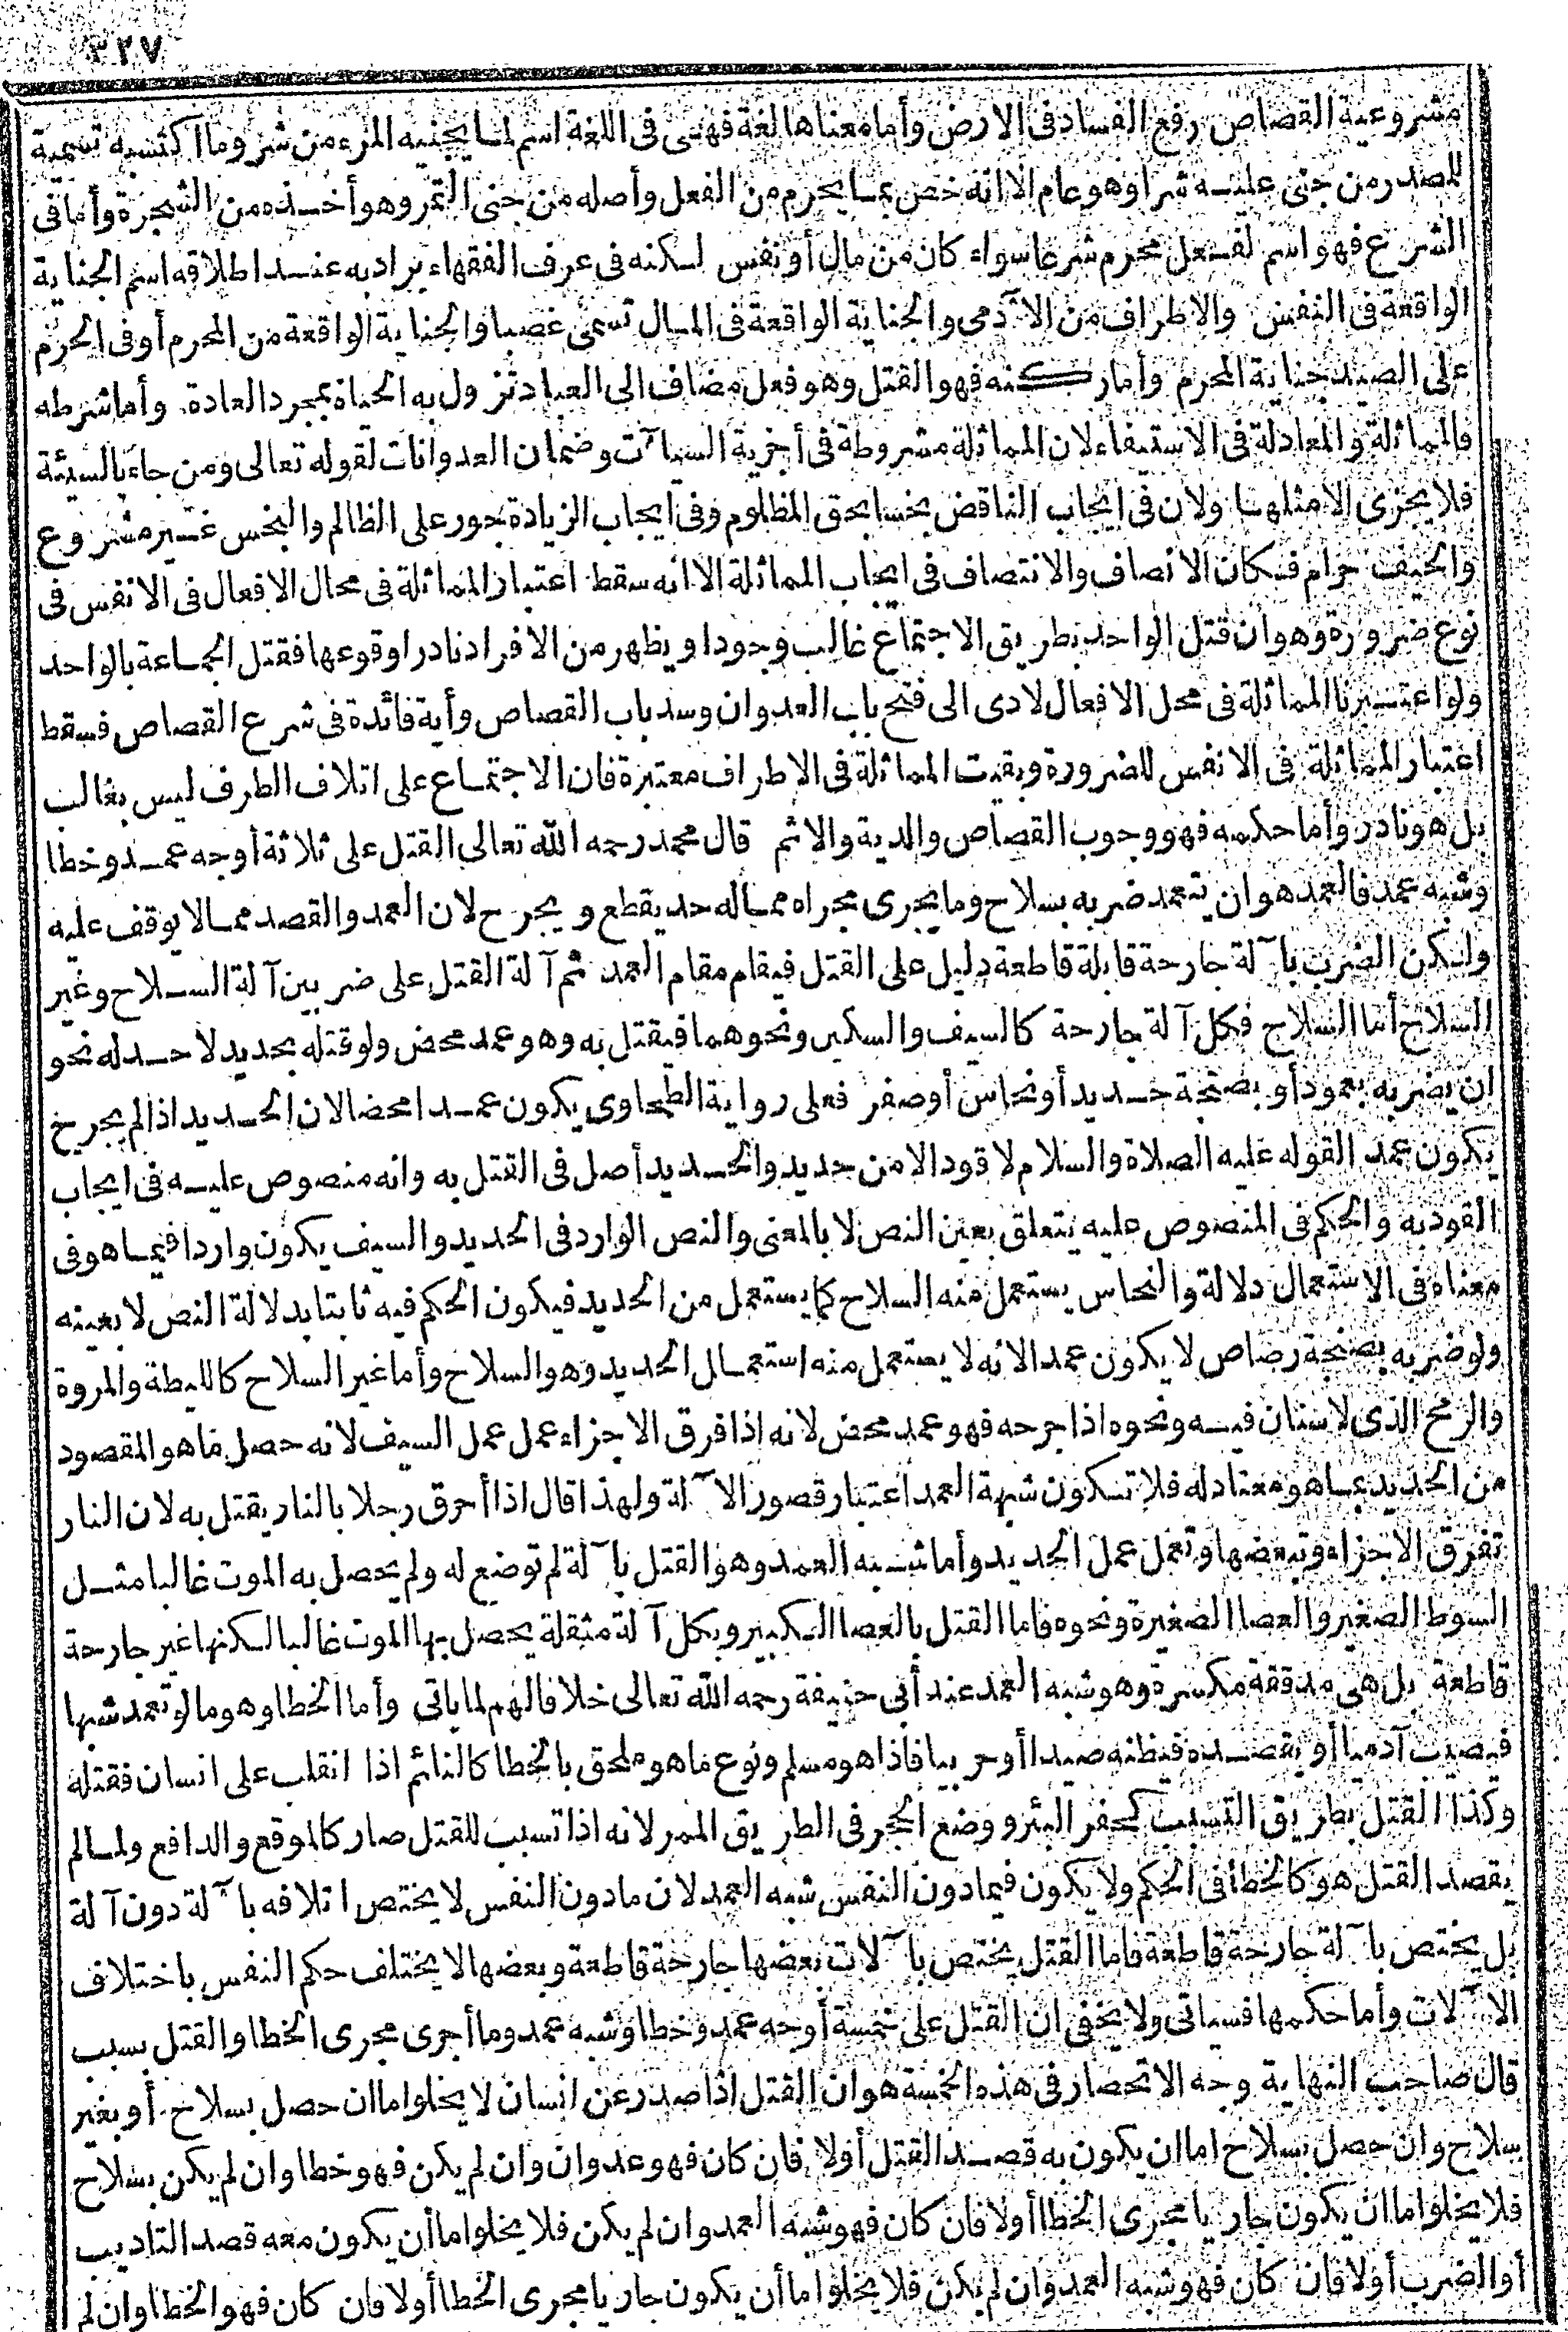 ٣٢٧
مشروعية القصاص رفع الفساد فى الارض وأما معناها لغة فهى فى اللغة اسم لما يجنيه المرء من شر وما اكتسبه تسمية
للصدر من جنى عليه شرا وهو عام الا انه خص بما يحرم من الفعل وأصله من جنى الثمر وهو أخذه من الشجرة وأما فى
الشرع فهو اسم لفعل محرم شرعا سواء كان من مال أو نفس لكنه فى عرف الفقهاء يراد به عند اطلاقه اسم الجناية
الواقعة فى النفس والاطراف من الآدمى والجناية الواقعة فى المال تسمى غصبا والجناية الواقعة من المحرم أو فى الحرم
على الصيد جناية المحرم وأما ركنه فهو القتل وهو فعل مضاف الى العباد تزول به الحياة بمجرد العادة وأما شرطه
فالمماثلة والمعادلة فى الاستيفاء لان المماثلة مشروطة فى أجزية السيآت وضمان العدوانات لقوله تعالى ومن جاء بالسيئة
فلا يجزى الا مثلها ولان فى ايجاب الناقص بخسا بحق المظلوم وفى ايجاب الزيادة جور على الظالم والبخس غير مشروع
والحيف حرام فكان الانصاف والانتصاف فى ايجاب المماثلة الا انه سقط اعتبار المماثلة فى محال الافعال فى الانفس فى
نوع ضرورة وهو ان قتل الواحد بطريق الاجتماع غالب وجودا ويظهر من الافراد نادرا وقوعها فقتل الجماعة بالواحد
ولو اعتبرنا المماثلة فى محل الافعال لادى الى فتح باب العدوان وسد باب القصاص وأية فائدة فى شرع القصاص فسقط
اعتبار المماثلة فى الانفس للضرورة وبقيت المماثلة فى الاطراف معتبرة فان الاجتماع على اتلاف الطرف ليس بغالب
بل هو نادر وأما حكمه فهو وجوب القصاص والدية والاثم قال محمد رحمه الله تعالى القتل على ثلاثة أوجه عمد وخطا
وشبه عمد فالعمد هو ان يتعمد ضربه بسلاح وما يجرى مجراه مما له حد يقطع ويجرح لان العمد والقصد مما لا يوقف عليه
ولكن الضرب بآلة جارحة قابلة قاطعة دليل على القتل فيقام مقام العمد ثم آلة القتل على ضربين آلة السلاح وغير
السلاح أما السلاح فكل آلة جارحة كالسيف والسكين ونحوهما فيقتل به وهو عمد محض ولو قتله بحديد لا حد له نحو
ان يضربه بعمود أو بصنجة حديد أو نحاس أو صفر فعلى رواية الطحاوى يكون عمدا محضا لان الحديد اذا لم يجرح
يكون عمدا لقوله عليه الصلاة والسلام لا قود الا من حديد والحديد أصل فى القتل به وانه منصوص عليه فى ايجاب
القود به والحكم فى المنصوص عليه يتعلق بعين النص لا بالمعنى والنص الوارد فى الحديد والسيف يكون واردا فيما هو فى
معناه فى الاستعمال دلالة والنحاس يستعمل منه السلاح كما يستعمل من الحديد فيكون الحكم فيه ثابتا بدلالة النص لا بعينه
ولو ضربه بصنجة رصاص لا يكون عمدا لانه لا يستعمل منه استعمال الحديد وهو السلاح وأما غير السلاح كالليطة والمروة
والرمح الذى لا سنان فيه ونحوه اذا جرحه فهو عمد محض لانه اذا فرق الاجزاء عمل عمل السيف لانه حصل ما هو المقصود
من الحديد بما هو معتاد له فلا تكون شبهة العمد اعتبار قصور الآلة ولهذا قال اذا أحرق رجلا بالنار يقتل به لان النار
تفرق الاجزاء وتبعضها وتعمل عمل الحديد وأما شبه العمد وهو القتل بآلة لم توضع له ولم يحصل به الموت غالبا مثل
السوط الصغير والعصا الصغيرة ونحوه فاما القتل بالعصا الكبير وبكل آلة مثقلة يحصل بها الموت غالبا لكنها غير جارحة
قاطعة بل هى مدققة مكسرة وهو شبه العمد عند أبى حنيفة رحمه الله تعالى خلافا لهم لما ياتى وأما الخطا وهو ما لو تعمد شبها
فيصيب آدميا أو يقصده فيظنه صيدا أو حربيا فاذا هو مسلم ونوع ما هو ملحق بالخطا كالنائم اذا انقلب على انسان فقتله
وكذا القتل بطريق التسبب كحفر البئر ووضع الحجر فى الطريق الممر لانه اذا تسبب للقتل صار كالموقع والدافع ولما لم
يقصد القتل هو كالخطأ فى الحكم ولا يكون فيما دون النفس شبه العمد لان ما دون النفس لا يختص اتلافه بآلة دون آلة
بل يختص بآلة جارحة قاطعة فاما القتل يختص بآلات بعضها جارحة قاطعة وبعضها لا يختلف حكم النفس باختلاف
الآلات وأما حكمها فسياتى ولا يخفى ان القتل على خمسة أوجه عمد وخطا وشبه عمد وما أجرى مجرى الخطا والقتل بسبب
قال صاحب النهاية وجه الانحصار فى هذه الخمسة هو ان القتل اذا صدر عن انسان لا يخلو اما ان حصل بسلاح أو بغير
سلاح وان حصل بسلاح اما ان يكون به قصد القتل أولا فان كان فهو عدوان وان لم يكن فهو خطا وان لم يكن بسلاح
فلا يخلو اما ان يكون جاريا مجرى الخطا أولا فان كان فهو شبه العمد وان لم يكن فلا يخلو اما أن يكون معه قصد التاديب
أو الضرب أولا فان كان فهو شبه العمد وان لم يكن فلا يخلو اما أن يكون جاريا مجرى الخطا أولا فان كان فهو الخطا وان لم